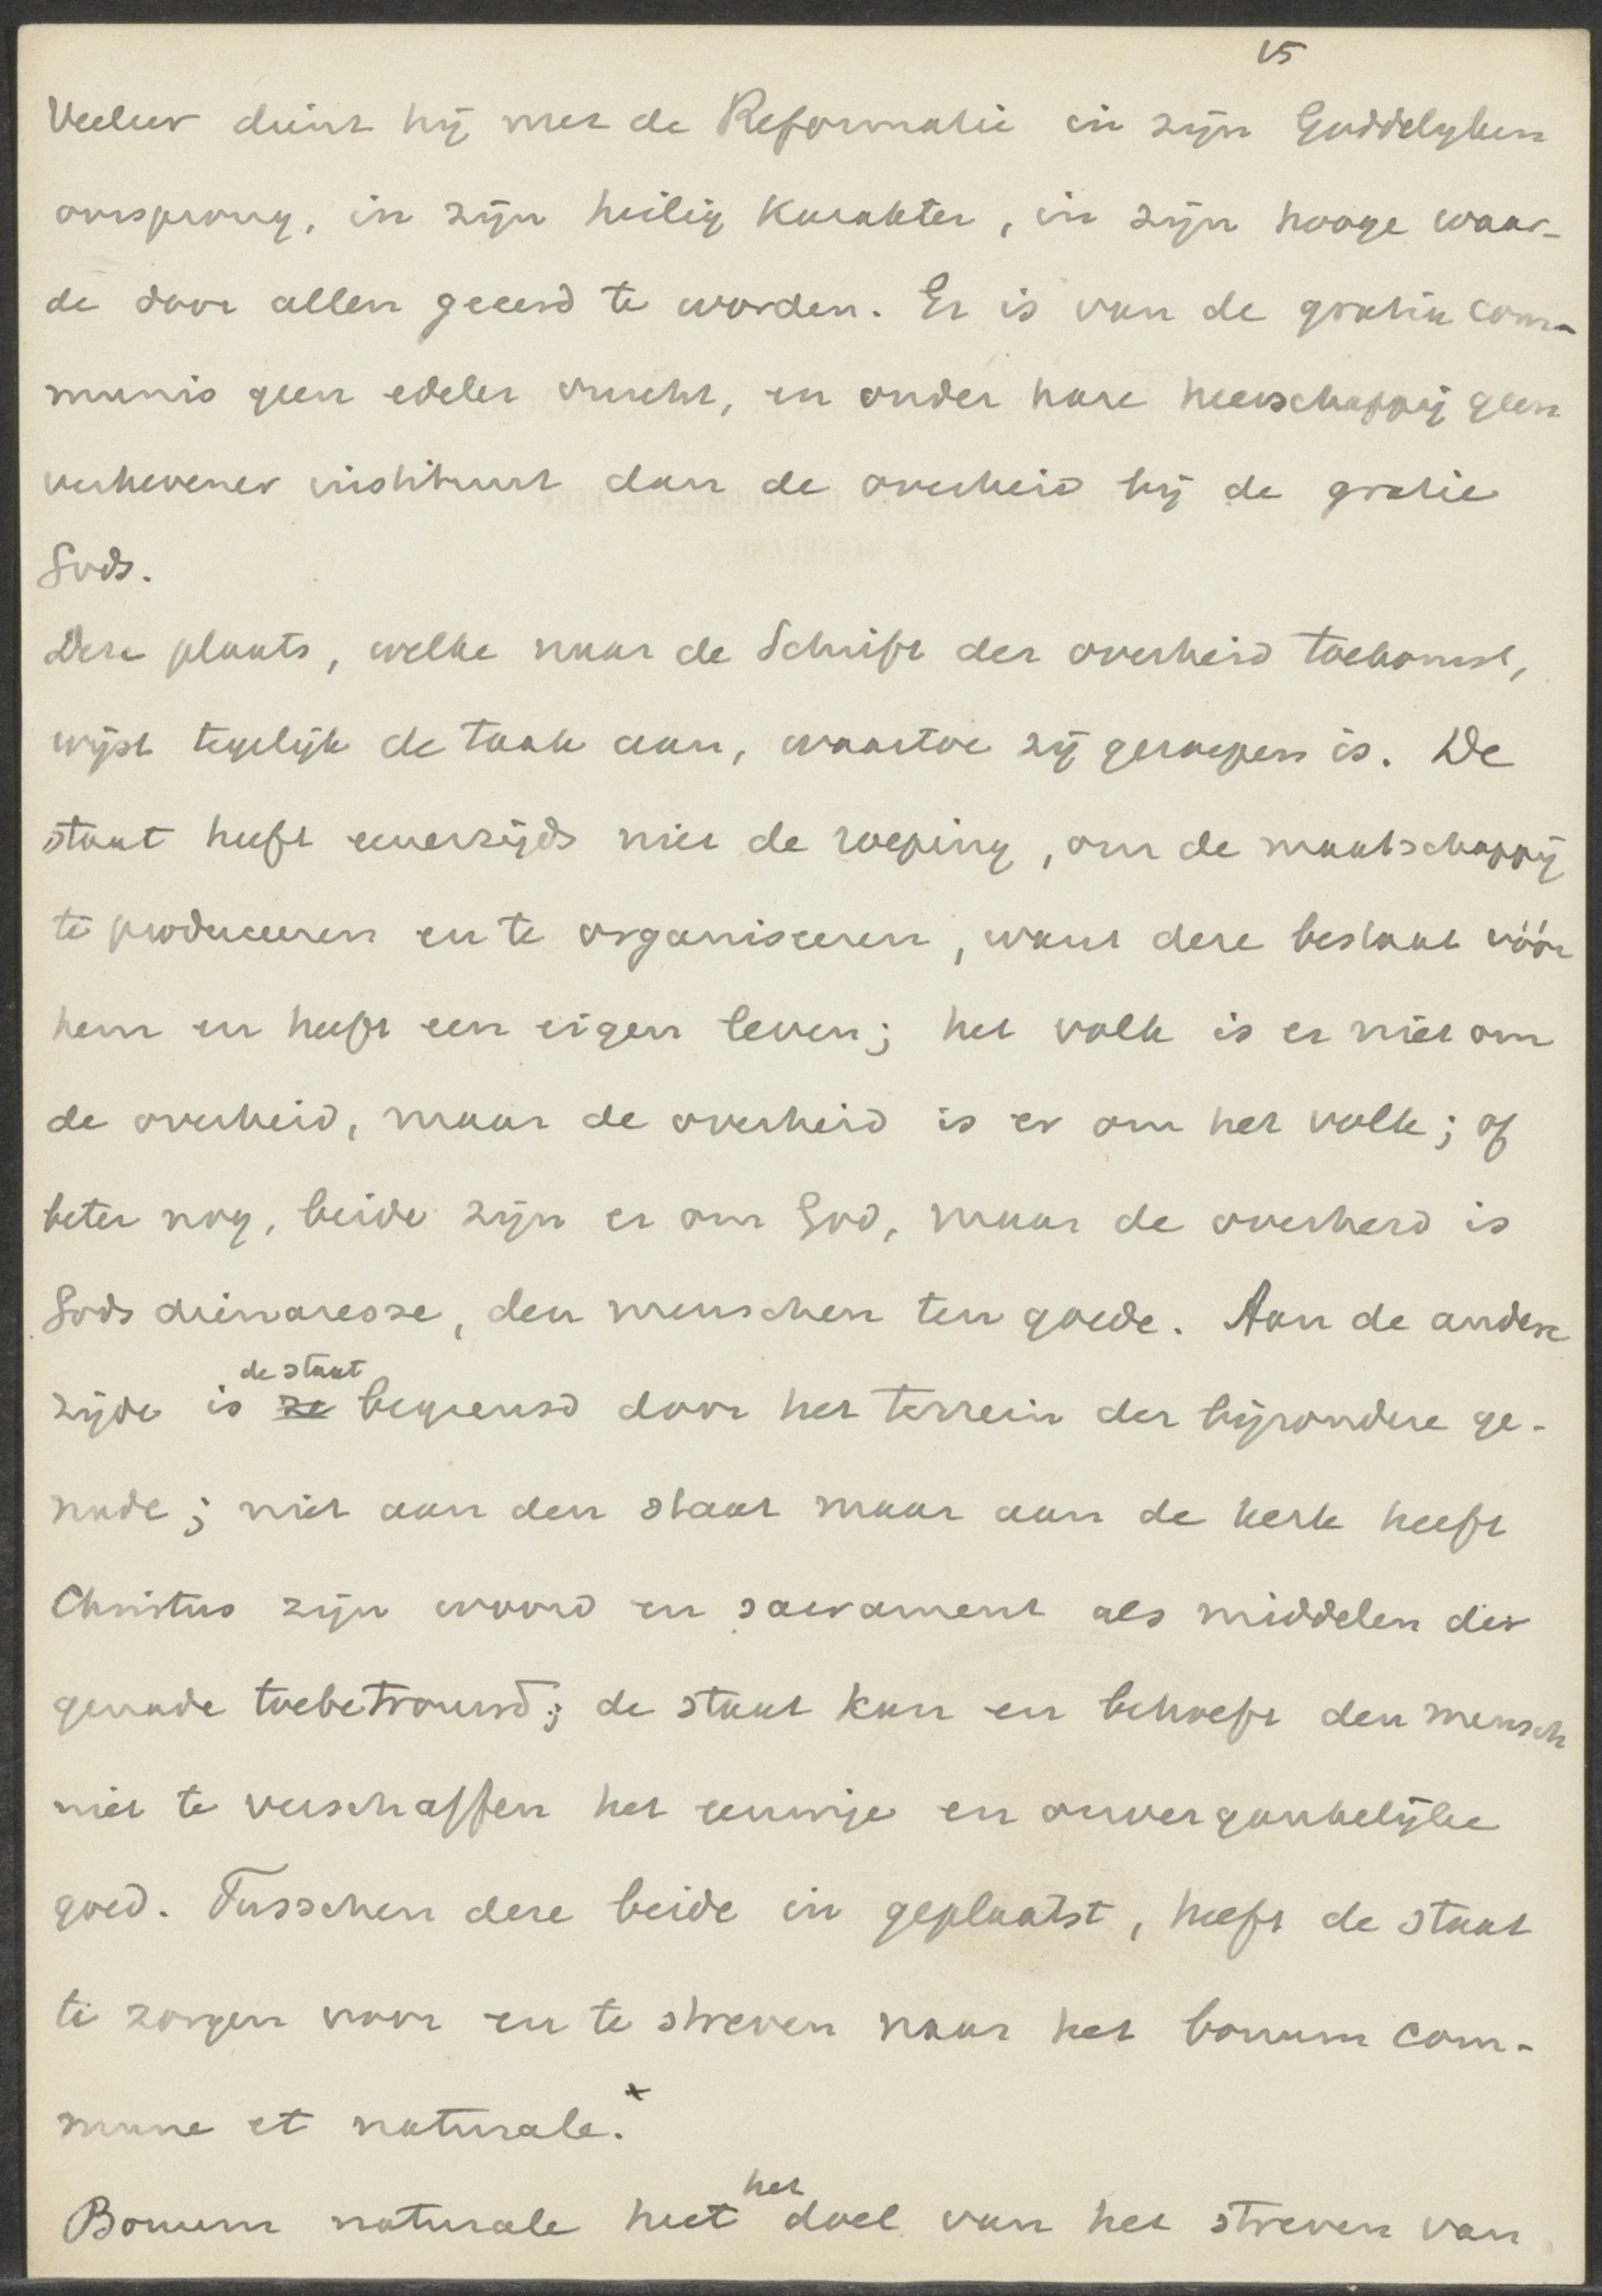 15
Veeleer dient hij met de Reformatie in zijn Goddelyken
oorsprong, in zijn heilig karakter, in zijn hooge waar-
de door allen geeerd te worden. Er is van de gratia com-
munis geen edeler vrucht, en onder hare heerschappij geen
verhevener instituut dan de overheid bij de gratie
Gods.
Deze plaats, welke naar de Schrift der overheid toekomst,
wijst tegelijk de taak aan, waartoe zij geroepen is. De
staat heeft eenerzijds niet de roeping, om de maatschappij
te produceeren en te organiseeren, want deze bestaat vóór
hem en heeft een eigen leven; het volk is er niet om
de overheid, maar de overheid is er om het volk; of
beter nog, beide zijn er om God, maar de overheid is
Gods dienaresse, den menschen ten goede. Aan de andere
de staat
zijde is ze begrensd door het terrein der bijzondere ge-
nade; niet aan den staat maar aan de kerk heeft
Christus zijn woord en sacrament als middelen der
genade toebetrouwd; de staat kan en behoeft den mensch
niet te verschaffen het eeuwige en onvergankelijke
goed. Tusschen deze beide in geplaatst, heeft de staat
te zorgen voor en te streven naar het bonum com-
mune et naturale.x
het
Bonum naturale heet doel van het streven van